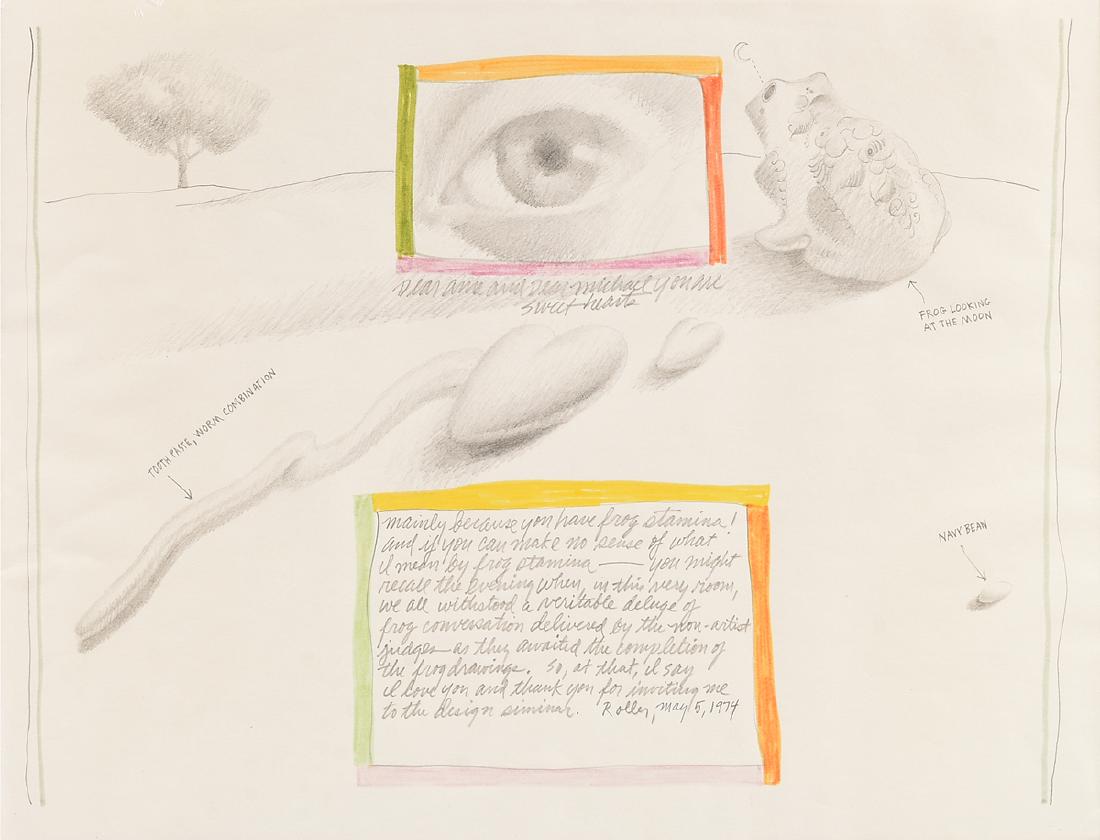 Dear anne and Dear michael you are
sweet hearts
FROG LOOKING
AT THE MOON
TOOTH PASTE, WORM COMBINATION
NAVY BEAN
mainly because you have frog stamina!
and if you can make no sense of what
I mean by frog stamina — you might
recall the evening when, in this very room,
we all withstood a veritable deluge of
frog conversation delivered by the non-artist
judges as they awaited the completion of
the frog drawings. So, at that, I say
I love you and thank you for inviting me
to the design siminar. Roller, may 5, 1974